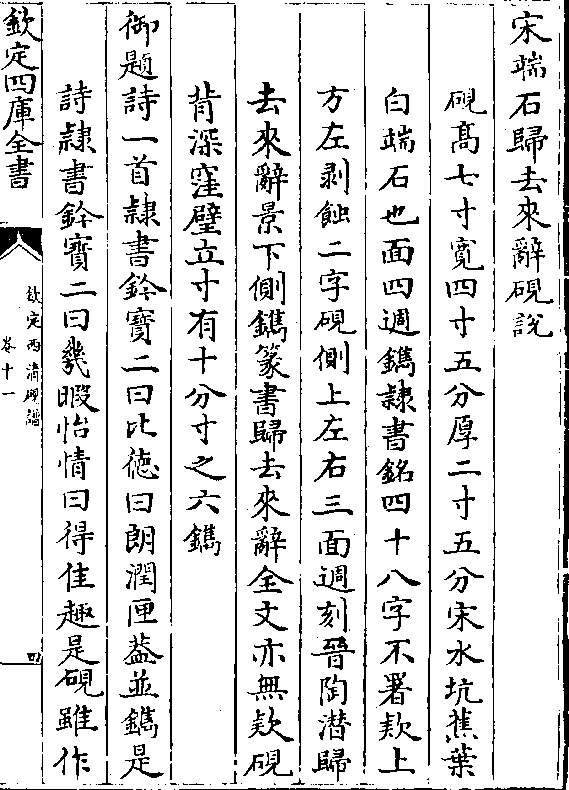 宋端石歸去來辭硯說
硯髙七寸寛四寸五分厚二寸五分宋水坑蕉葉
白端石也面四週鐫隷書銘四十八字不署欵上
方左剥蝕二字硯側上左右三面週刻晉陶潜歸
去來辭景下側鐫篆書歸去來辭全文亦無欵硯
背深窪壁立寸有十分寸之六鐫
御題詩一首隷書鈐寳二曰比徳曰朗潤匣葢並鐫是
詩隷書鈐寳二曰㡬暇怡情曰得佳趣是硯雖作
欽定四庫全書
欽定西清硯譜
卷十一
四